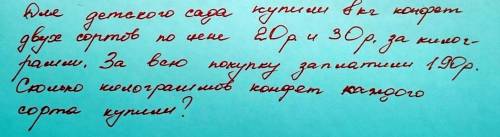 Для детского сада купили 8 кг конфет
двух сортов по цене 20р и 30р. за килог-
рамм. За всю покупку заплатили 190р.
Сколько килограммов конфет каждого
сорта купили?